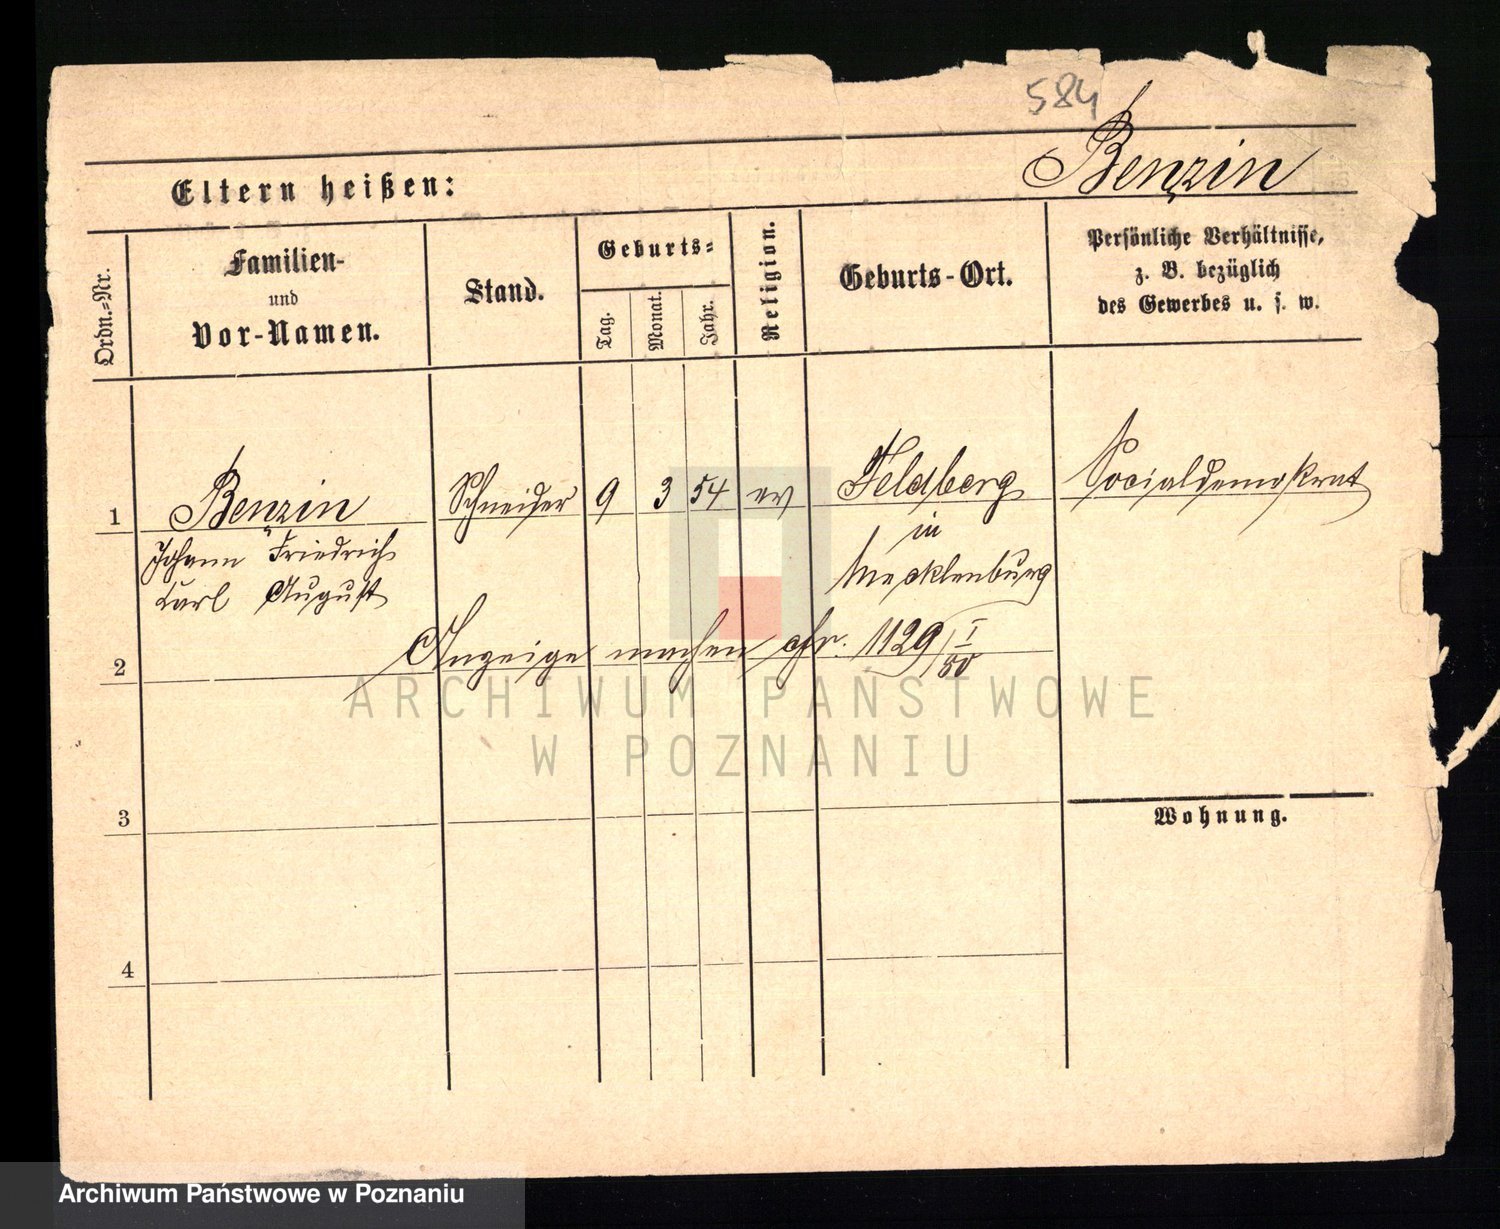 584
Benzin
Eltern heißen:
Ordn.-Nr.
Familien-
und
Vor-Namen.
Stand.
Geburts-
Tag.
Monat.
Jahr.
Religion.
Geburts-Ort.
Persönliche Verhältnisse,
z. B. bezüglich
des Gewerbes u. s. w.
1
Benzin Schneider 9 3 54 ev Feldberg Socialdemokrat
Johann Friedrich in
Carl August Mecklenburg
2 Anzeige machen cfr. 1129/I 80
ARCHIWUM PAŃSTWOWE
W POZNANIU
3
Wohnung.
4
Archiwum Państwowe w Poznaniu